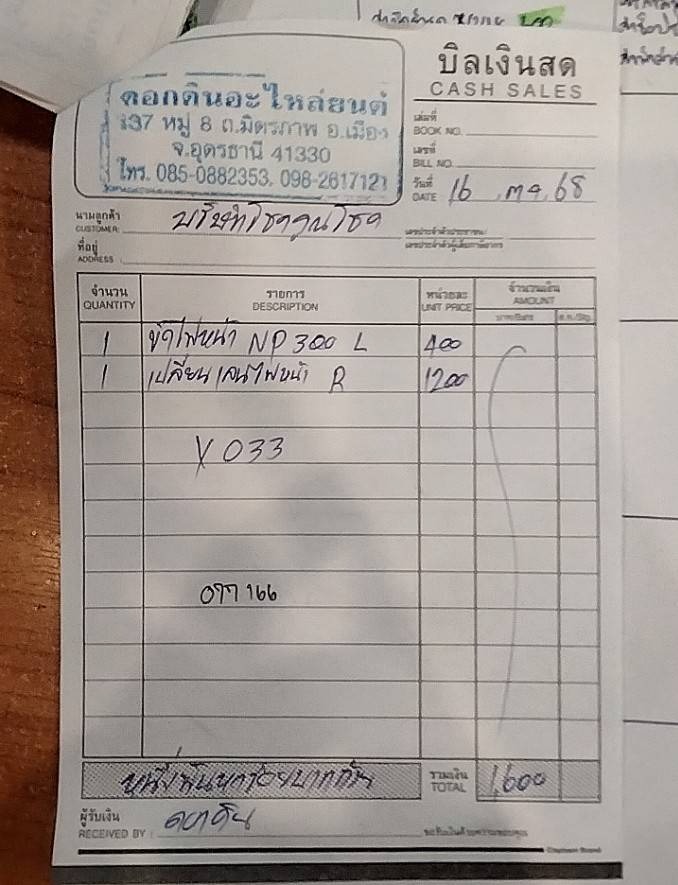 บิลเงินสด
CASH SALES
ดอกดินอะไหล่ยนต์
137 หมู่ 8 ถ.มิตรภาพ อ.เมือง
จ.อุดรธานี 41330
โทร. 085-0882353, 098-2617121
เล่มที่
BOOK NO.
เลขที่
BILL NO.
วันที่
DATE 16 ,
68
นามลูกค้า
CUSTOMER บริษัท โชคคูณโชค
เลขประจำตัวประชาชน/
เลขประจำตัวผู้เสียภาษีอากร
ที่อยู่
ADDRESS
จำนวน รายการ หน่วยละ จำนวนเงิน
QUANTITY DESCRIPTION UNIT PRICE AMOUNT
1 ขัดไฟหน้า NP 300 L 400
1 เปลี่ยนเลนไฟหน้า R 1200
033
166
หนึ่งพันหกร้อยบาทถ้วน รวมเงิน 1,600
TOTAL
ผู้รับเงิน
RECEIVED BY : ดอกดิน